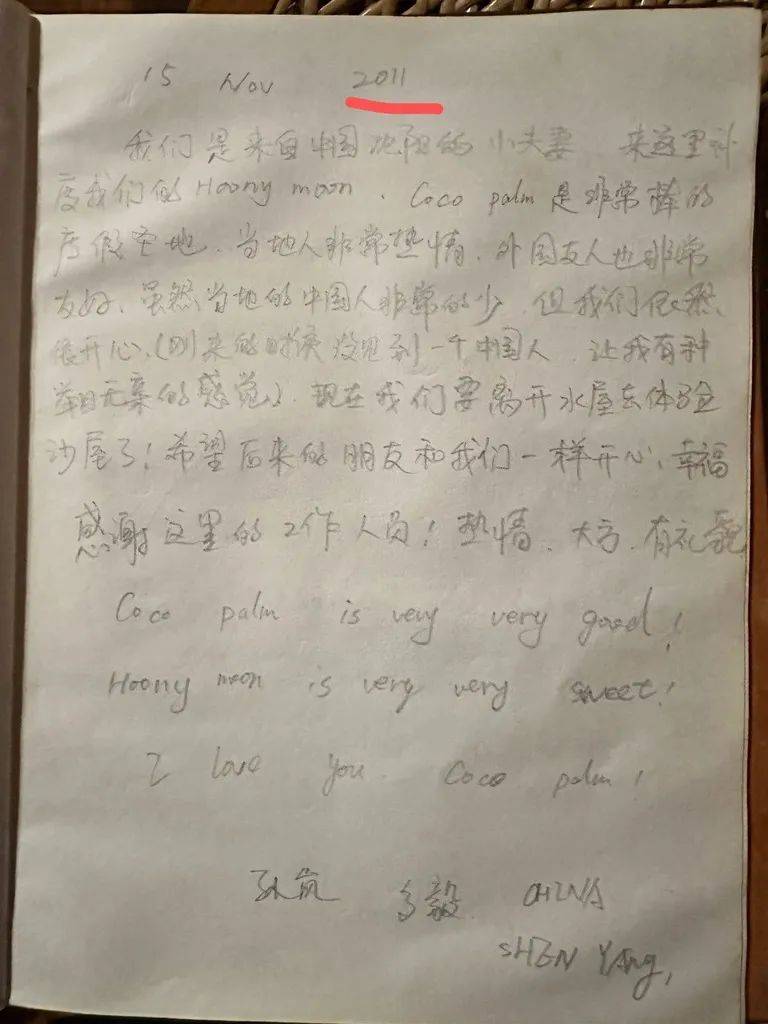 15 Nov 2011
我们是来自中国沈阳的小夫妻 来这里补
度我们的Hoony moon. Coco palm是非常棒的
度假圣地、当地人非常热情、外国友人也非常
友好、虽然当地的中国人非常的少 但我们依然
很开心、(刚来的时候没见到一个中国人 让我有种
举目无亲的感觉). 现在我们要离开水屋去体验
沙屋了! 希望后来的朋友和我们一样开心、幸福
感谢这里的工作人员! 热情、大方、有礼貌
Coco palm is very very good!
Hoony moon is very very sweet!
I love you Coco palm!
孙 毅 CHINA
SHEN YANG,